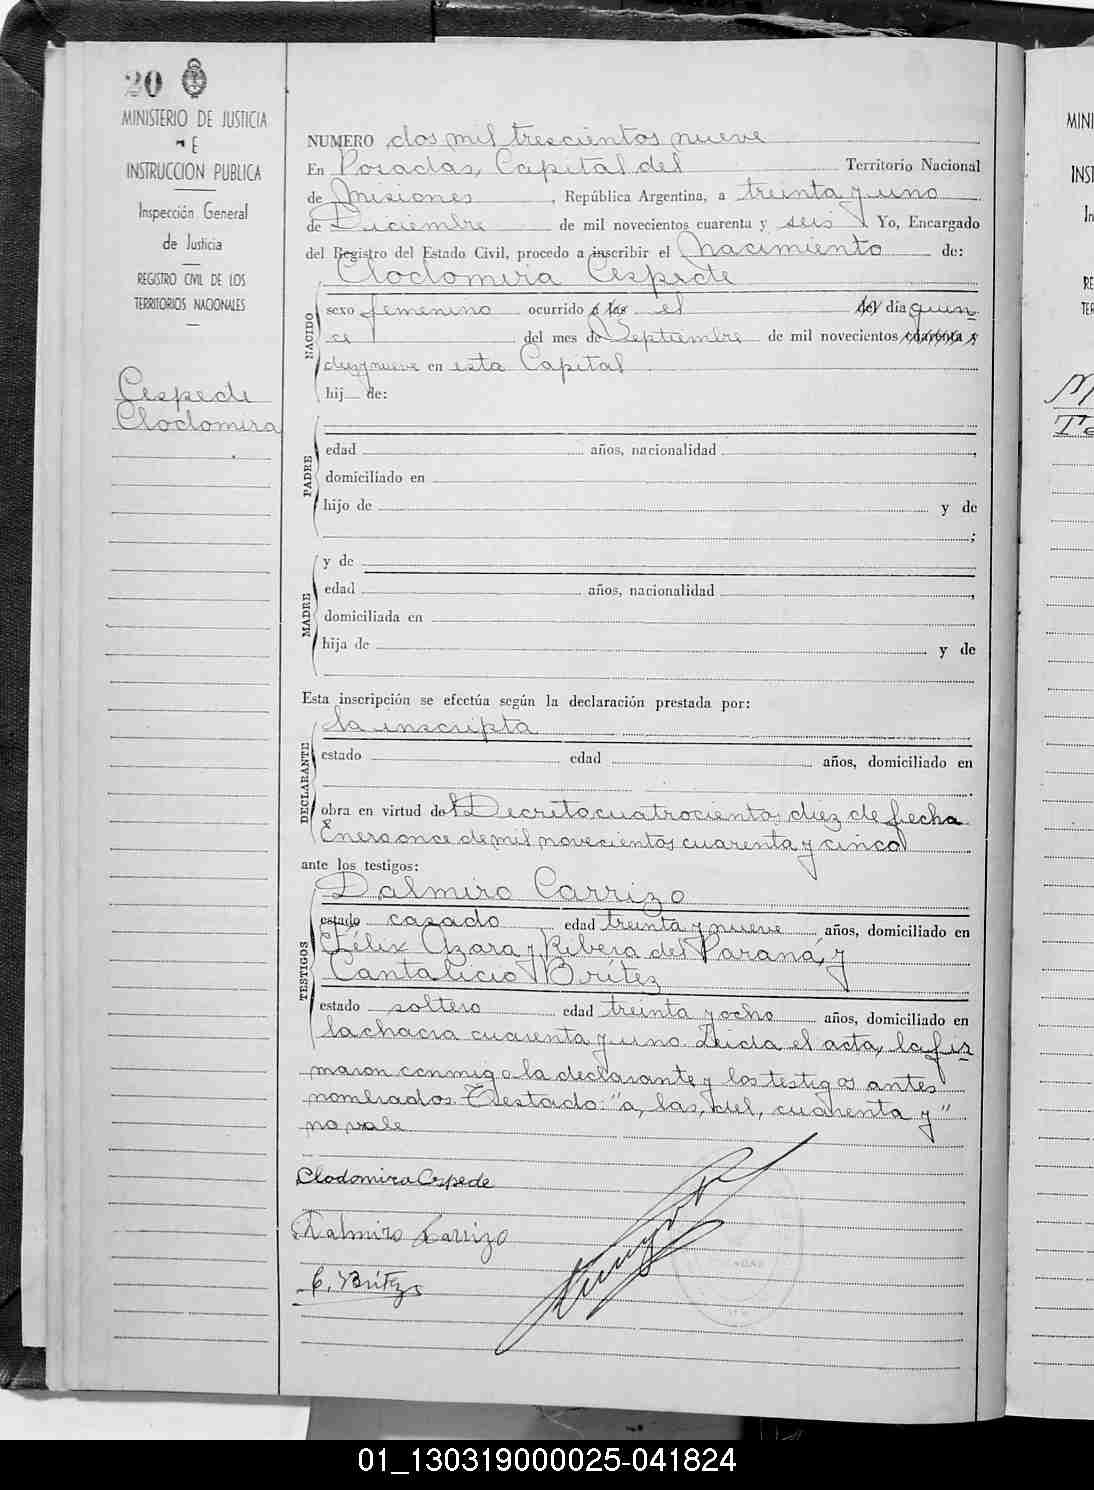 20
MINISTERIO DE JUSTICIA
E
INSTRUCCION PUBLICA
Inspección General
de Justicia
REGISTRO CIVIL DE LOS
TERRITORIOS NACIONALES
Cespede
Clodomira
NUMERO dos mil trescientos nueve
En Posadas, Capital del Territorio Nacional
de Misiones, República Argentina, a treinta y uno
de Diciembre de mil novecientos cuarenta y seis Yo, Encargado
del Registro del Estado Civil, procedo a inscribir el Nacimiento de:
Clodomira Cespede
NACIDO
sexo femenino ocurrido a las el del día quin
ce del mes de Septiembre de mil novecientos cuarenta y
diez y nueve en esta Capital
hij de:
PADRE
edad años, nacionalidad ,
domiciliado en
hijo de y de
;
MADRE
y de
edad años, nacionalidad ,
domiciliada en
hija de y de
Esta inscripción se efectúa según la declaración prestada por:
DECLARANTE
la inscripta
estado edad años, domiciliado en
.
obra en virtud del Decreto cuatrocientos diez de fecha
Enero once de mil novecientos cuarenta y cinco
ante los testigos:
TESTIGOS
Dalmiro Carrizo
estado casado edad treinta y nueve años, domiciliado en
Félix Azara y Ribera del Paraná, y
Cantalicio Brítez
estado soltero edad treinta y ocho años, domiciliado en
la chacra cuarenta y uno. Leida el acta, la fir
maron conmigo la declarante y los testigos antes
nombrados. Testado: "a, las, del, cuarenta y"
no vale.
Clodomira Cespede
Dalmiro Carrizo
C. Brítez
MINI
INST
In
RE
TER
01_130319000025-041824